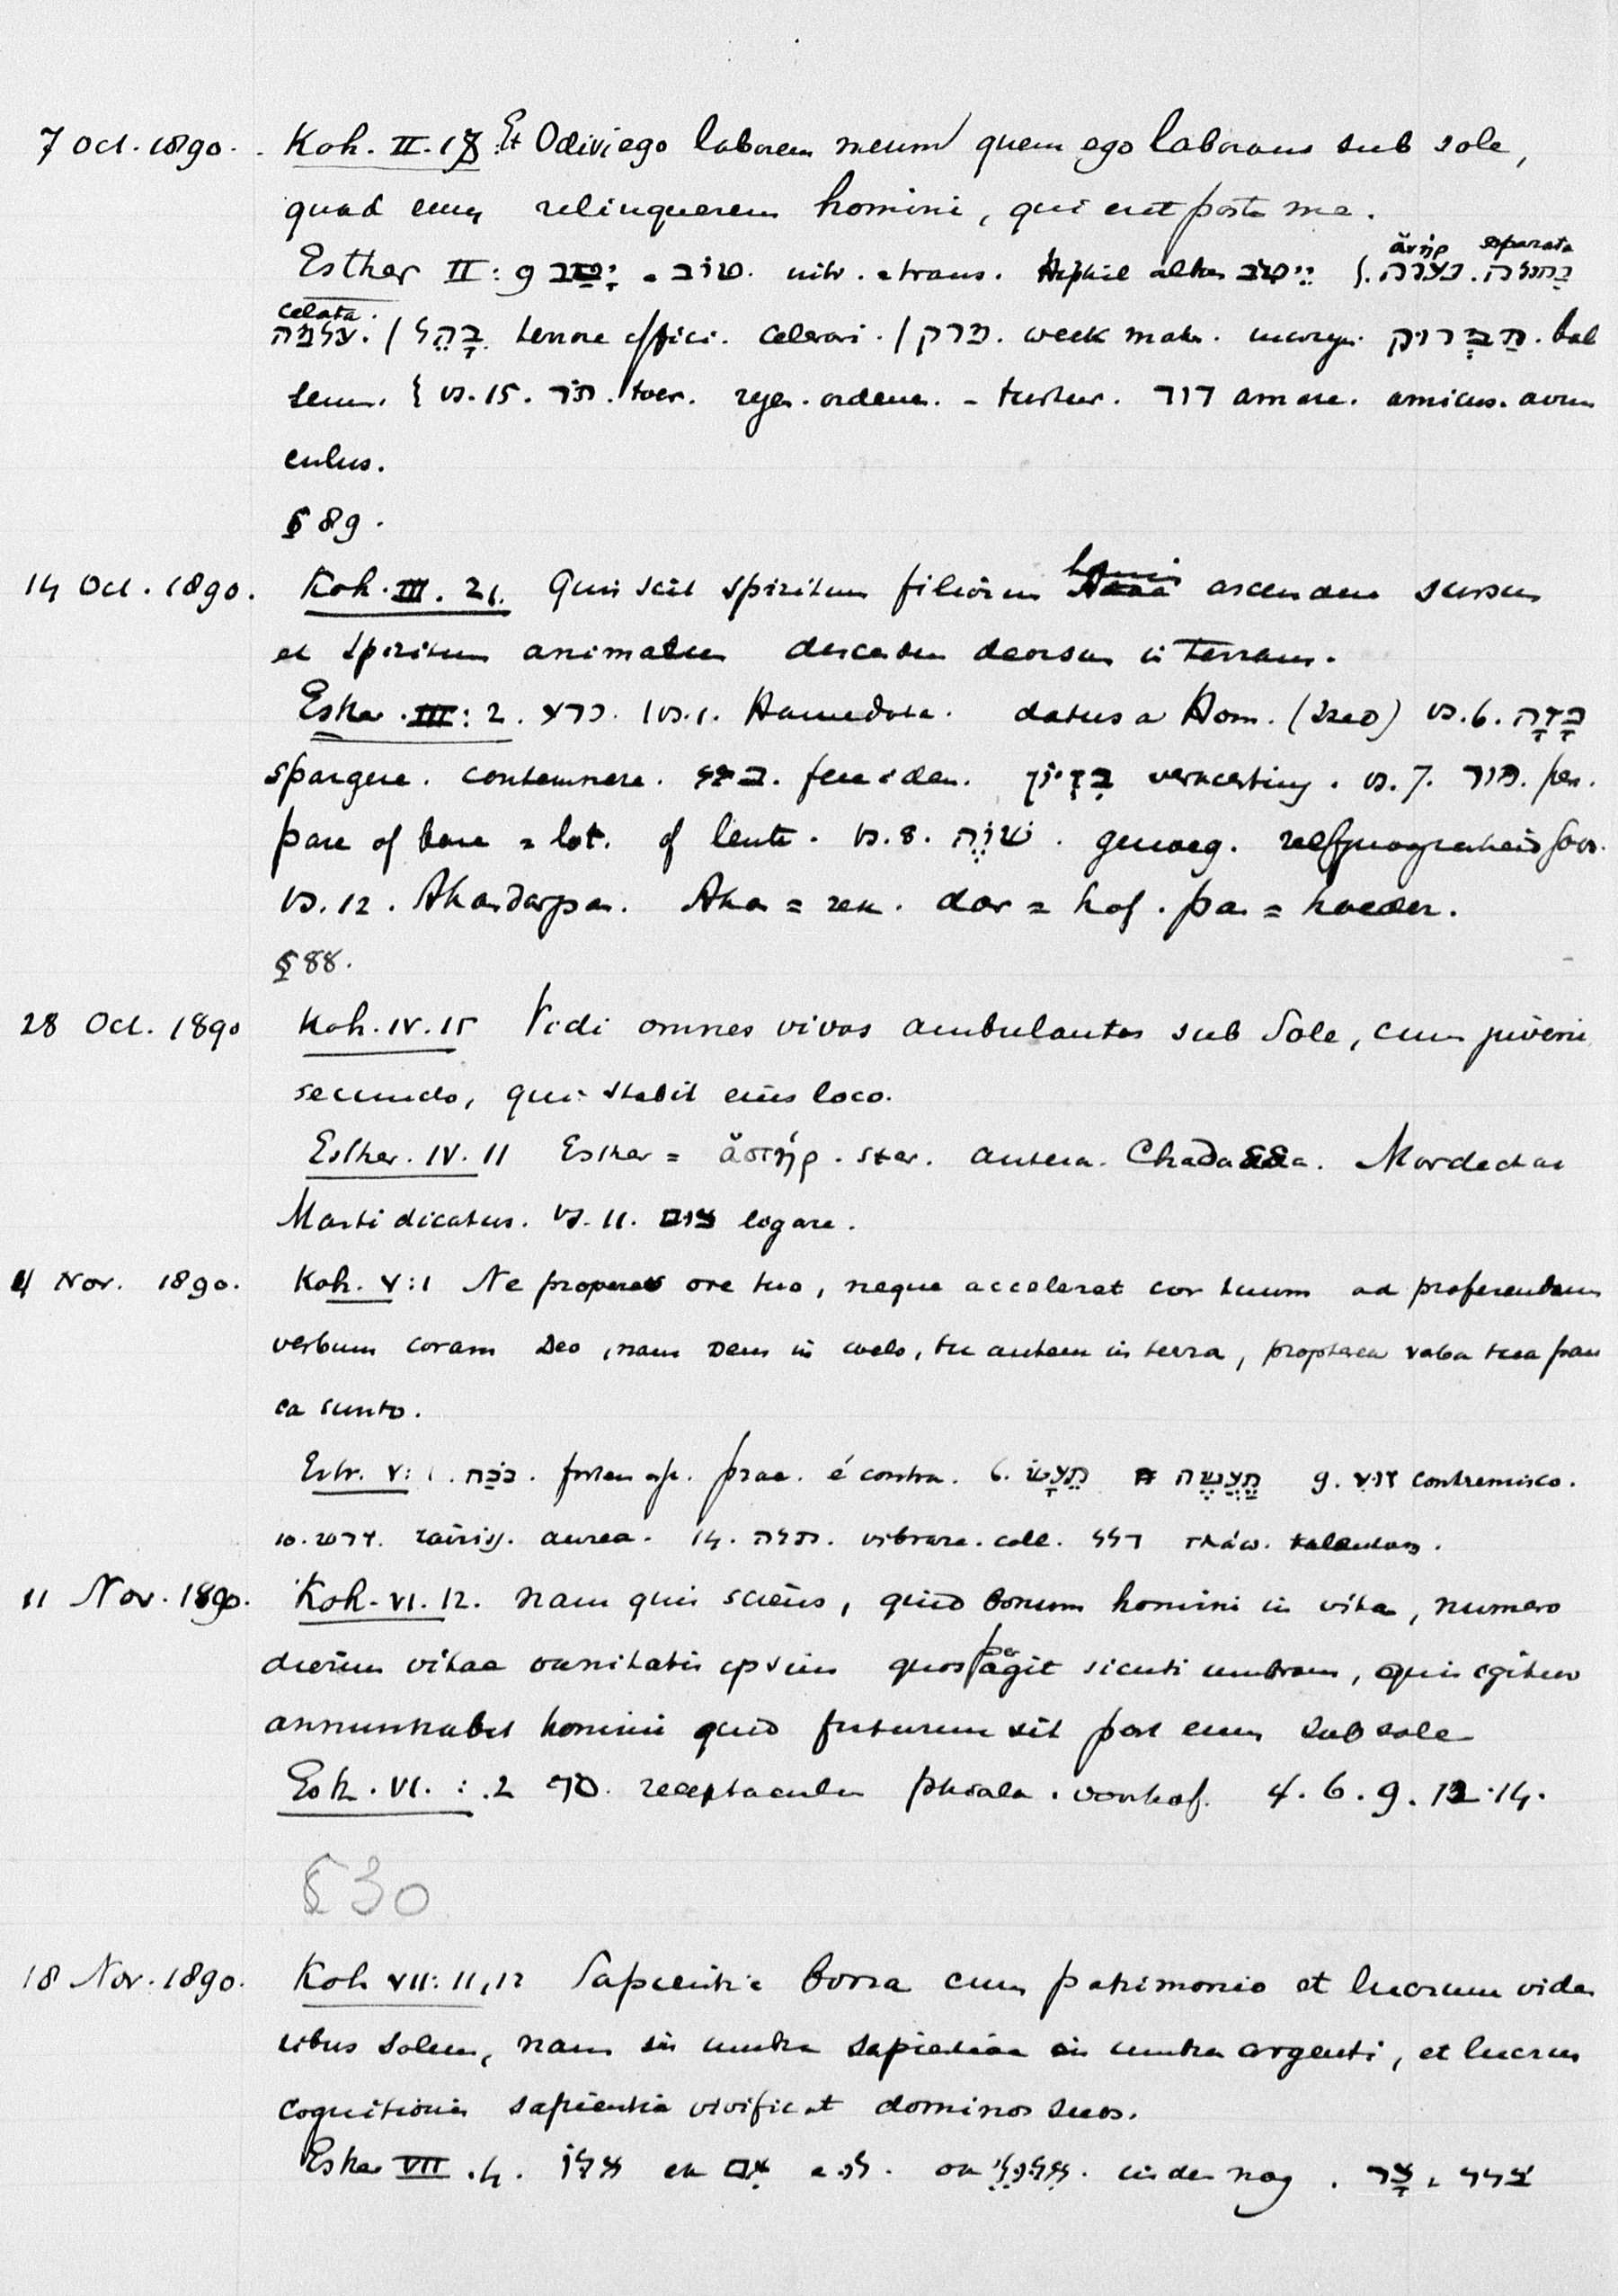 7 Oct. 1890. Koh. II. 18. Et Odivi ego laborem meum quem ego laborans sub sole,
quod eum relinquerem homini, qui erit post me.
ἀστήρ separata
Esther II: 9 יָטַב = טוֹב. intr. = trans. Hiphil alter יֵיטִב
celata.
בָּהַל terrore effici. celerari. / מרק. week maken. תַּמְרוּק. bal
sem. vs. 15. תֹּר. toer. regel. ordenen. - turtur. דוד amare. amicus. avun
culus.
§ 89.
14 Oct. 1890. Koh. III. 21. Quis scit spiritum filiorum hominis ascendere sursum
et spiritum animalium descendere deorsum in terram.
Esther. III: 2. כרע. vs. 1. Hamedata. datus a Hom. vs. 6. בָּזָה
spargere. contemnere. בזא. בִּזָּיוֹן verachting. vs. 7. פור. per.
pare of bare = lot. of lente. vs. 8. שׁוֶֹה. genoeg.
vs. 12. Ahasdarpan. dar = hof. pan = hoeder.
§ 88.
28 Oct. 1890 Koh. IV. 15 Vidi omnes vivos ambulantes sub Sole, cum juveni
secundo, qui stabit eius loco.
Esther. IV. 11 Esther = ἀστήρ. ster. antea. Chadassa. Mordechai
Marti dicatus. vs. 11. צום ligare.
4 Nov. 1890. Koh. V:1 Ne properes ore tuo, neque acceleret cor tuum ad proferendum
verbum coram Deo, nam Deus in coelo, tu autem in terra, propterea verba tua pau
ca sunto.
Esth. V: 1. נֹכַח. prae. é contra. 6. תֵעָשׂ תֵּעָשֶׂה 9. זוע contremisco.
10. זרש. aurea. 14. תלה. vibrare. coll. דלל talentum.
11 Nov. 1890. Koh. VI. 12. nam quis sciens, quid bonum homini in vita, numero
dierum vitae vanitatis ipsius quos peragit sicuti umbram, quis igitur
annuntiabit homini quid futurum sit post eum sub sole
Esth. VI. : 2 סף. receptaculum phiala. voorhof. 4. 6. 9. 12. 14.
§ 30
18 Nov. 1890. Koh VII: 11, 12 Sapientia bona cum patrimonio et lucrum viden
tibus solem, nam in umbra sapientiae in umbra argenti, et lucrum
cognitionis sapientia vivificat dominos suos.
Esther VII. 4. אִלּוּ en אִם לוּ. on in der nog. צַר = צרר